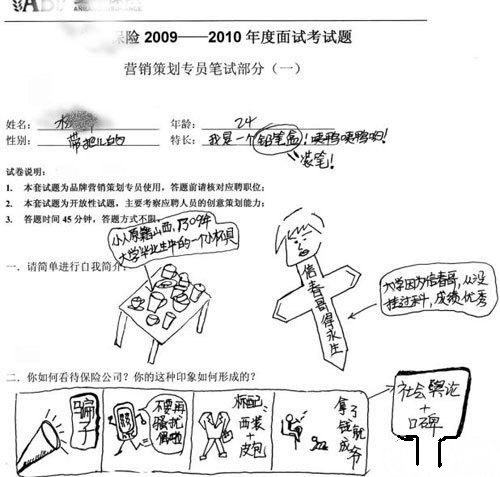 保险 2009——2010 年度面试考试题
营销策划专员笔试部分（一）
姓名：
年龄：24
性别：带把儿的
特长：我是一个铅笔盒！咦鸭咦鸭哟！
装笔！
试卷说明：
1. 本套试题为品牌营销策划专员使用，答题前请核对应聘职位；
2. 本套试题为开放性试题，主要考察应聘人员的创意策划能力；
3. 答题时间 45 分钟，答题方式不限
小人原籍山西，09年
大学毕业生中的一个小杯具
一、请简单进行自我简介
信春哥得永生
大学因为信春哥，从没
挂过科，成绩优秀
二、你如何看待保险公司？你的这种印象如何形成的？
骗子
不要再
骚扰
俺啦
标配：
西装
+
皮包
拿了
钱就
成爷
社会舆论
+
口碑